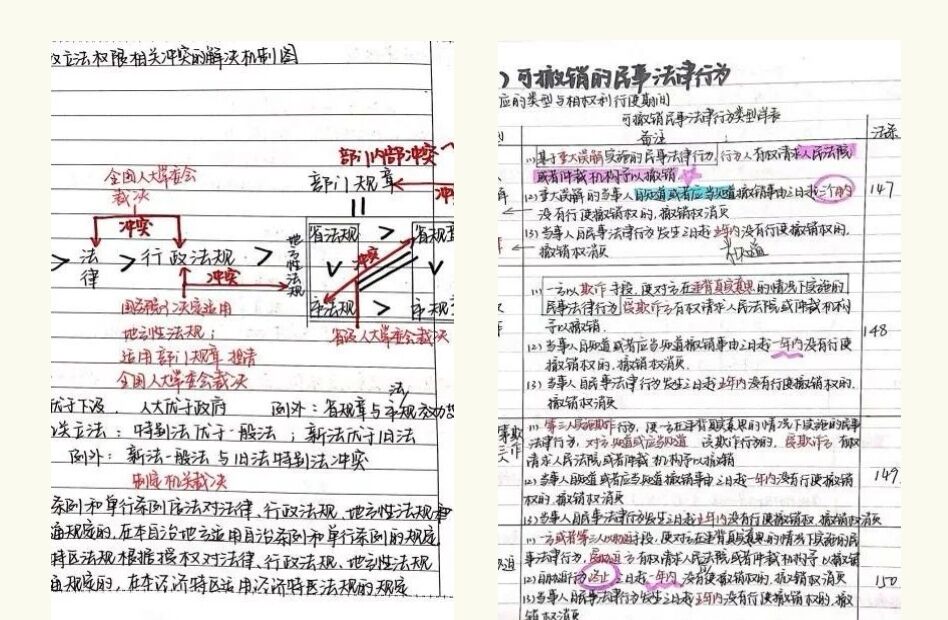 立法权限相关冲突的解决机制图
部门内部冲突
全国人大常委会
裁决
部门规章
冲突
冲突
=
省法规 > 省规章
> 法律 > 行政法规 > 地方性法规
冲突
冲突
市法规 > 市规章
国务院决定适用
地方性法规；
适用部门规章提请
全国人大常委会裁决
省级人大常委会裁决
优于下级. 人大优于政府 例外：省规章与市法规效力
立法：特别法优于一般法；新法优于旧法
例外：新法一般法与旧法特别法冲突
制定机关裁决
条例和单行条例依法对法律、行政法规、地方性法规
规定的, 在本自治地方适用自治条例和单行条例的规定
特区法规根据授权对法律、行政法规、地方性法规
规定的, 在本经济特区适用经济特区法规的规定
）可撤销的民事法律行为
应的类型与相权利行使期间
可撤销民事法律行为类型详表
备注
法条
(1)基于重大误解实施的民事法律行为, 行为人有权请求人民法院
或者仲裁机构予以撤销
(2)重大误解的当事人自知道或者应当知道撤销事由之日起三个月内
没有行使撤销权的, 撤销权消灭
147
(3)当事人自民事法律行为发生之日起五年内没有行使撤销权的,
撤销权消灭
不知道
(1)一方以欺诈手段, 使对方在违背真实意思的情况下实施的
民事法律行为 受欺诈方有权请求人民法院或者仲裁机构
予以撤销.
(2)当事人自知道或者应当知道撤销事由之日起一年内没有行使
撤销权的, 撤销权消灭
148
(3)当事人自民事法律行为发生之日起五年内没有行使撤销权的,
撤销权消灭
第三人欺诈
(1)第三人实施欺诈行为, 使一方在违背真实意思的情况下实施的民事
法律行为, 对方知道或应当知道该欺诈行为的, 受欺诈方有权
请求人民法院或者仲裁机构予以撤销
(2)当事人自知道或者应当知道撤销事由之日起一年内没有行使撤销
权的, 撤销权消灭
149
(3)当事人自民事法律行为发生之日起五年内没有行使撤销权, 撤销权消灭
(1)一方或者第三人以胁迫手段, 使对方在违背真实意思的情况下实施的民
事法律行为, 受胁迫方有权请求人民法院或者仲裁机构予以撤销
(2)自胁迫行为终止之日起一年内没有行使撤销权的, 撤销权消灭
150
(3)当事人自民事法律行为发生之日起五年内没有行使撤销权的, 撤
销权消灭